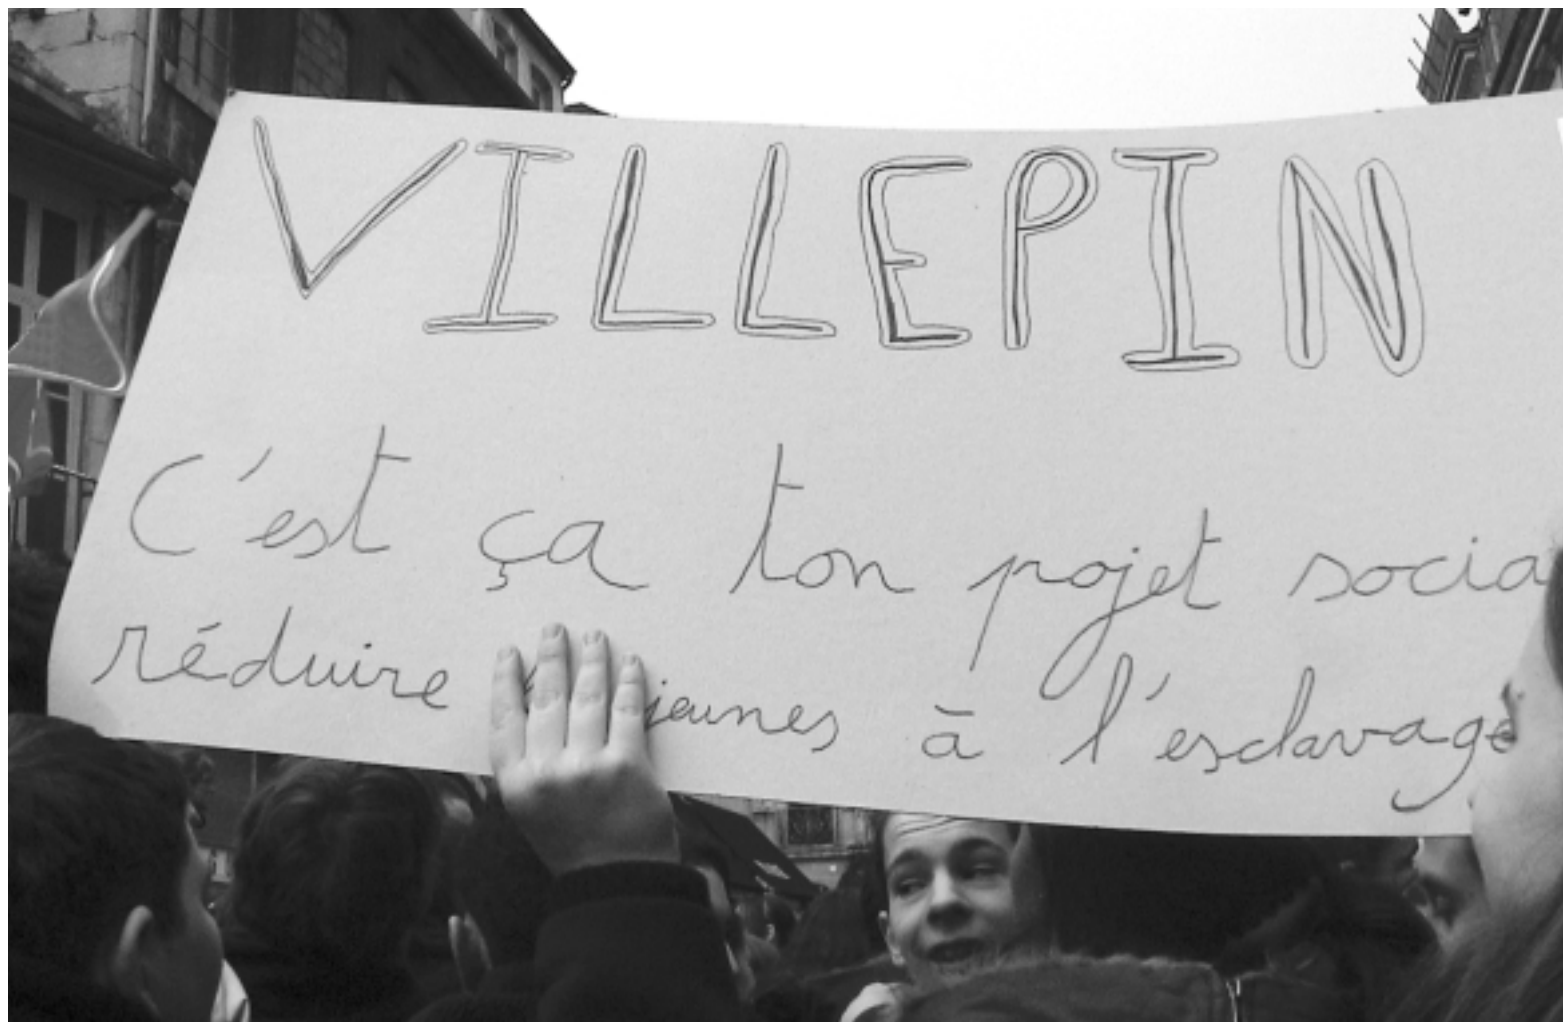 VILLEPIN
C'est ça ton projet socia
réduire jeunes à l'esclavage